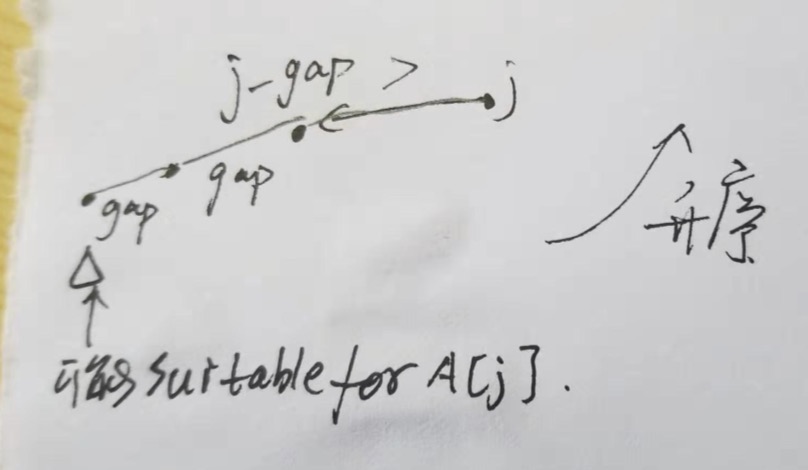 j-gap >
j
gap
gap
升序
可能 suitable for A[j].